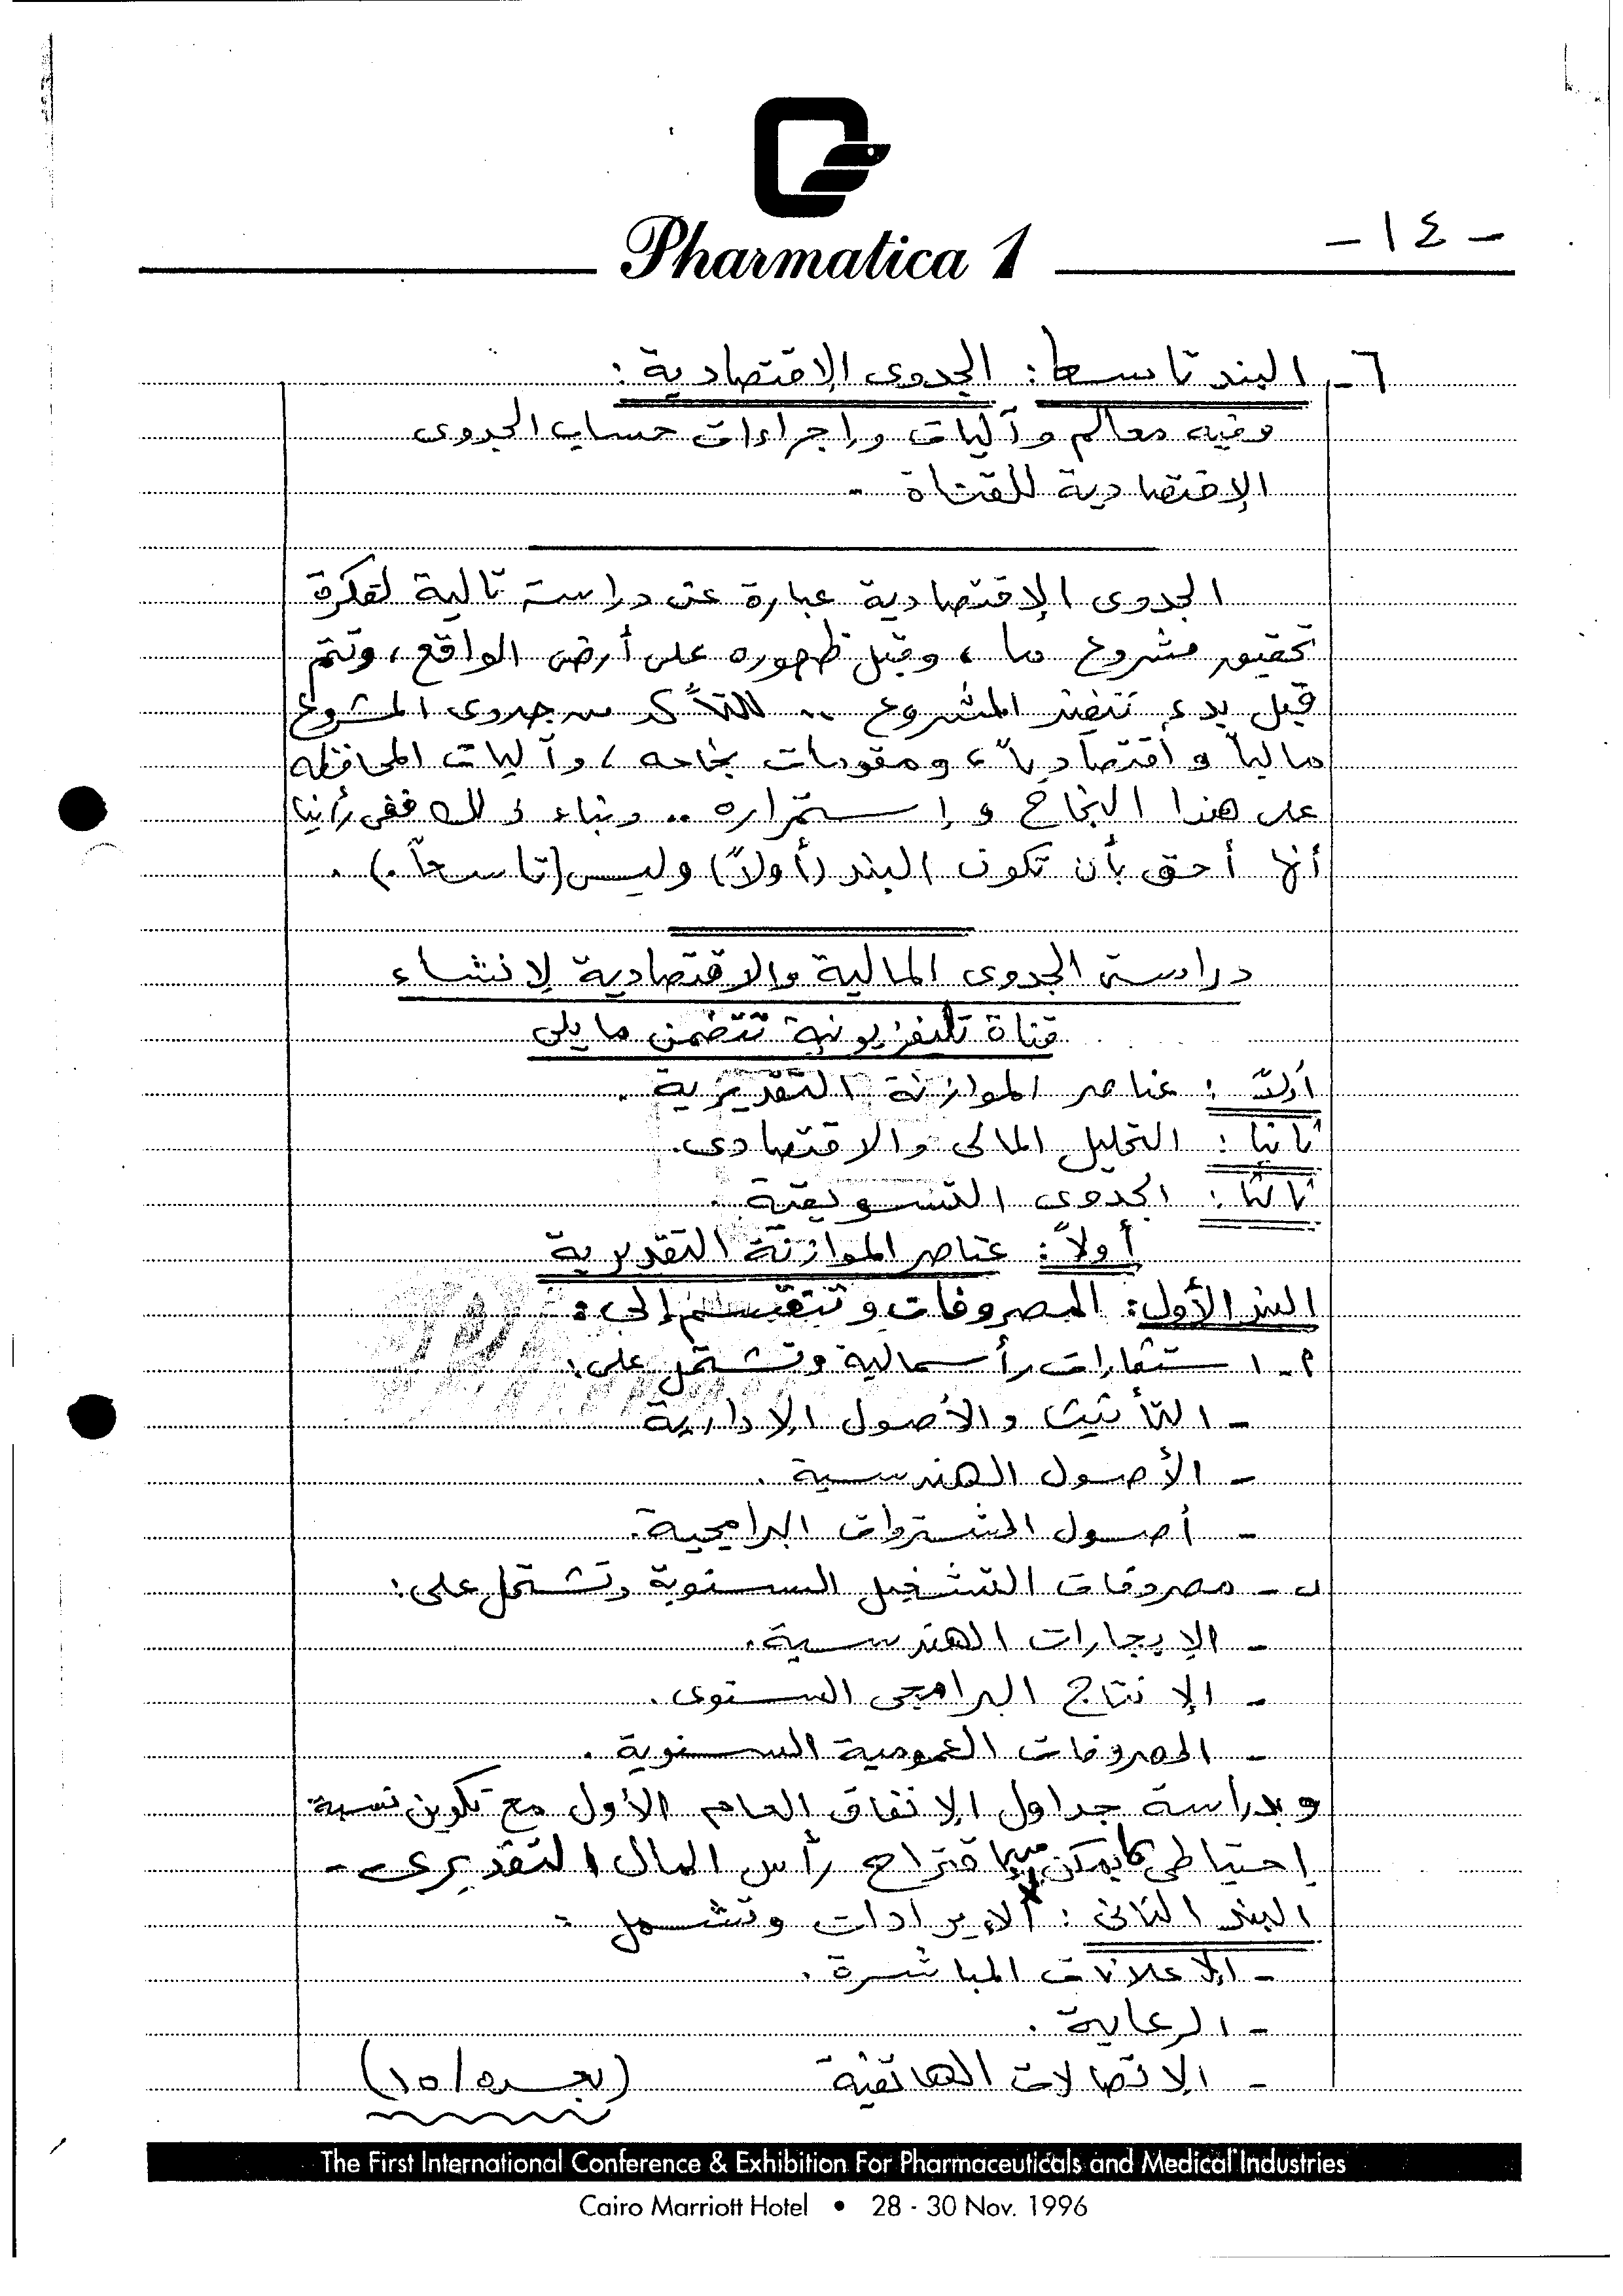 Pharmatica 1
- ١٤ -
٦- البند تاسعا: الجدوى الإقتصادية:
وفيه معالم وآليات وإجراءات حساب الجدوى
الإقتصادية للقناة -
الجدوى الإقتصادية عبارة عن دراسة تالية لفكرة
تحقيق مشروع ما، وقبل ظهوره على أرض الواقع، وتتم
قبل بدء تنفيذ المشروع .. للتأكد من جدوى المشروع
مالياً واقتصادياً، ومقومات نجاحه، وآليات المحافظه
على هذا النجاح وإستمراره .. وبناء ذلك ففى رأينا
أنها أحق بأن تكون البند (أولاً) وليس (تاسعاً.) .
دراسة الجدوى المالية والاقتصادية لإنشاء
قناة تليفزيونية تتضمن ما يلى
أولاً: عناصر الموازنة التقديرية .
ثانيا: التحليل المالى والاقتصادى.
ثالثا: الجدوى التسويقية .
أولاً: عناصر الموازنة التقديرية
البند الأول: المصروفات وتنقسم إلى:
م - استثمارات رأسمالية وتشتمل على:
- التأثيث والأصول الإدارية
- الأصول الهندسية .
- أصول المشتروات البرامجية.
ب - مصروفات التشغيل السنوية وتشتمل على:
- الإيجارات الهندسية.
- الإنتاج البرامجى السنوى .
- المصروفات العمومية السنوية .
وبدراسة جداول الإنفاق العام الأول مع تكوين نسبة
إحتياطى يمكن اقتراح رأس المال التقديرى -
البند الثانى: الإيرادات وتشمل :
- الإعلانات المباشرة .
- الرعاية .
- الإتصالات الهاتفية
(بعده/١٥)
The First International Conference & Exhibition For Pharmaceuticals and Medical Industries
Cairo Marriott Hotel • 28 - 30 Nov. 1996